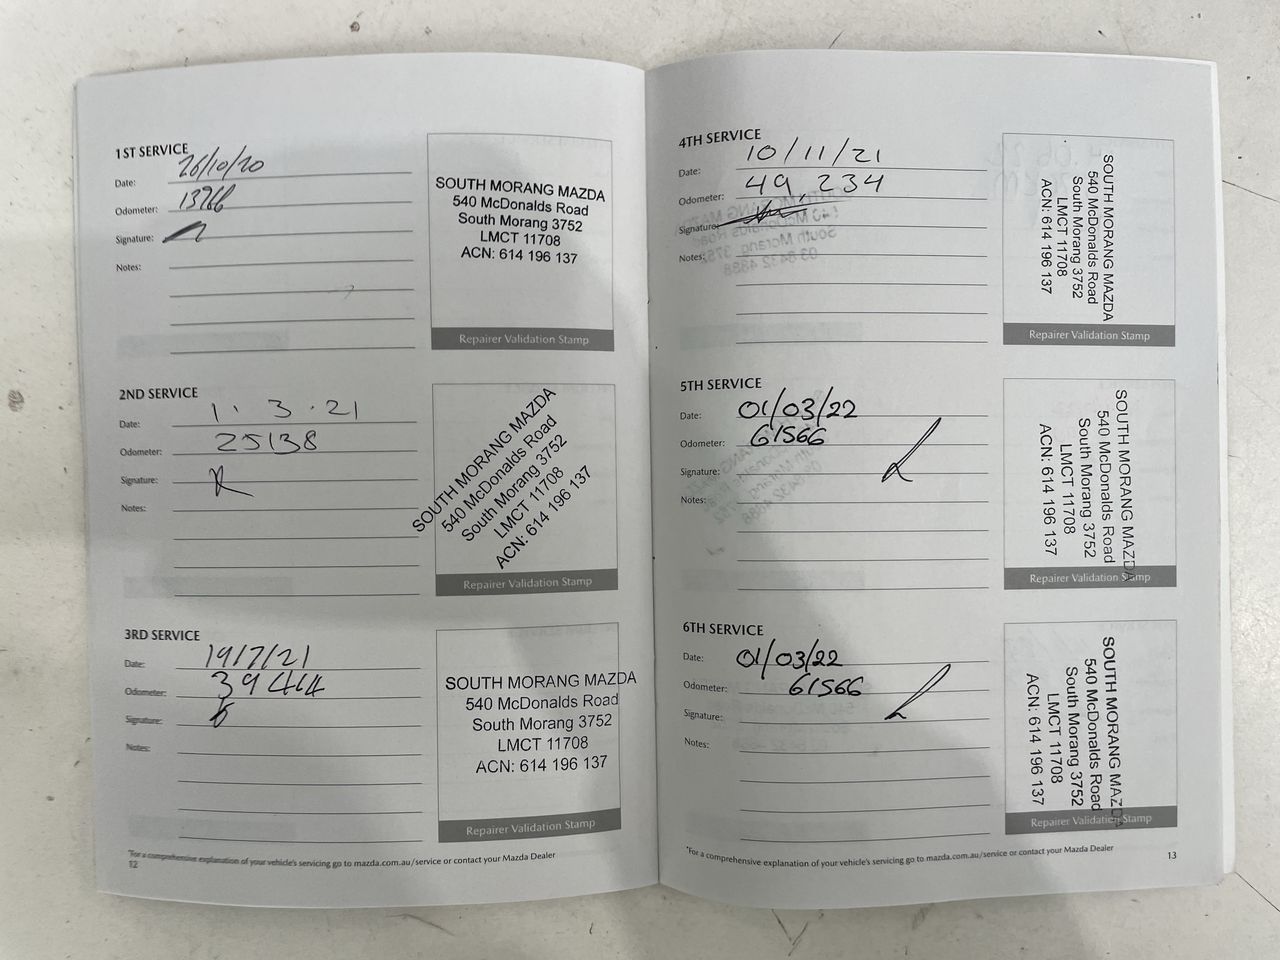 1ST SERVICE
Date: 26/10/20
Odometer: 13766
Signature:
Notes:
SOUTH MORANG MAZDA
540 McDonalds Road
South Morang 3752
LMCT 11708
ACN: 614 196 137
Repairer Validation Stamp
2ND SERVICE
Date: 1.3.21
Odometer: 25138
Signature:
Notes:
SOUTH MORANG MAZDA
540 McDonalds Road
South Morang 3752
LMCT 11708
ACN: 614 196 137
Repairer Validation Stamp
3RD SERVICE
Date: 19/7/21
Odometer: 39444
Signature:
Notes:
SOUTH MORANG MAZDA
540 McDonalds Road
South Morang 3752
LMCT 11708
ACN: 614 196 137
Repairer Validation Stamp
*For a comprehensive explanation of your vehicle's servicing go to mazda.com.au/service or contact your Mazda Dealer
12
4TH SERVICE
Date: 10/11/21
Odometer: 49,234
Signature:
Notes:
SOUTH MORANG MAZDA
540 McDonalds Road
South Morang 3752
LMCT 11708
ACN: 614 196 137
Repairer Validation Stamp
5TH SERVICE
Date: 01/03/22
Odometer: 61566
Signature:
Notes:
SOUTH MORANG MAZDA
540 McDonalds Road
South Morang 3752
LMCT 11708
ACN: 614 196 137
Repairer Validation Stamp
6TH SERVICE
Date: 01/03/22
Odometer: 61566
Signature:
Notes:
SOUTH MORANG MAZDA
540 McDonalds Road
South Morang 3752
LMCT 11708
ACN: 614 196 137
Repairer Validation Stamp
*For a comprehensive explanation of your vehicle's servicing go to mazda.com.au/service or contact your Mazda Dealer
13